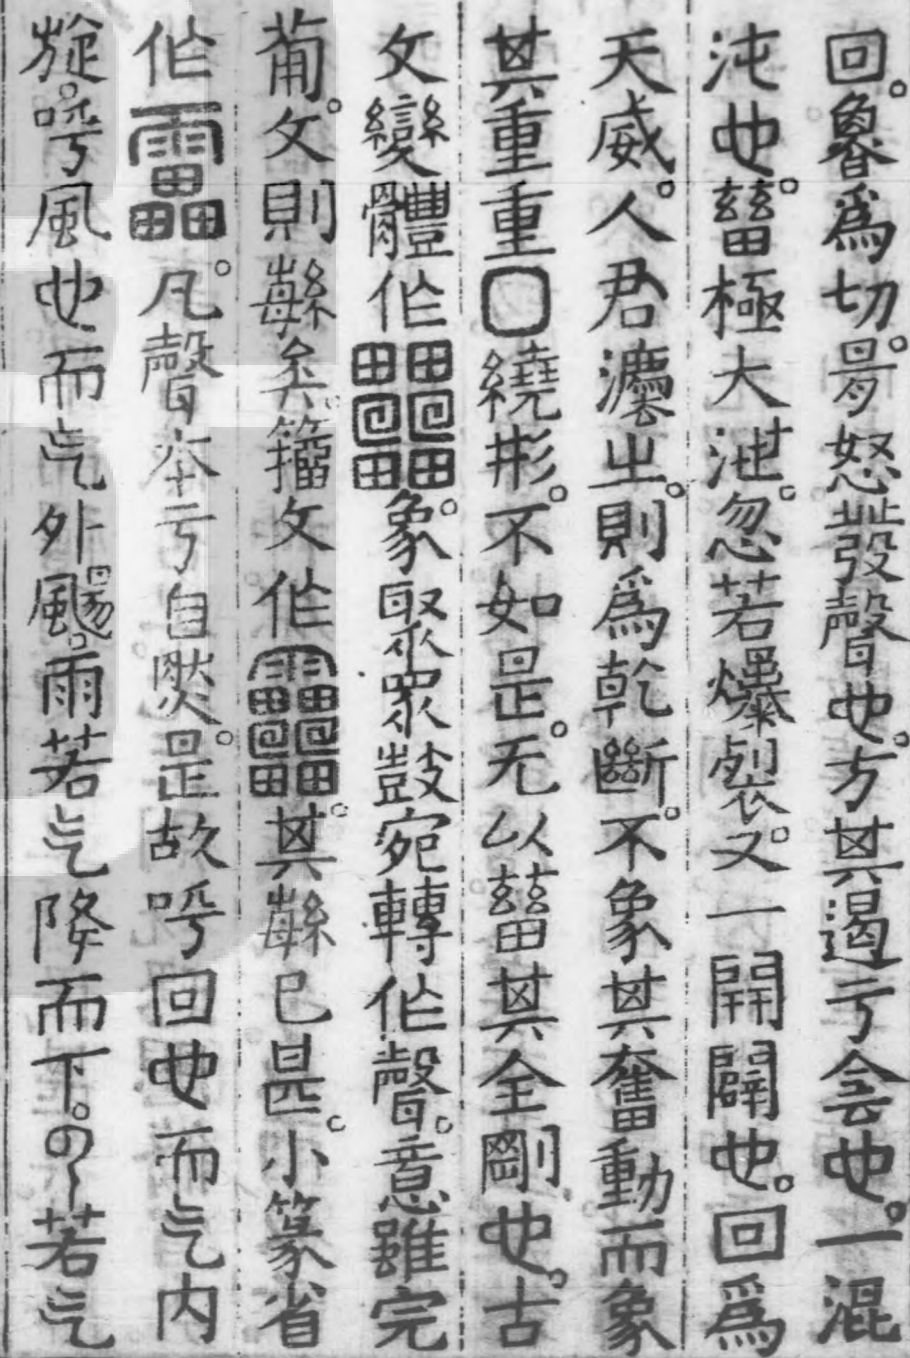 回。魯爲切。是怒發聲也。方其遏亏侌也。一混
沌也。蕃極大泄。忽若爆裂。又一開闢也。回爲
天威。人君灋㞢。則爲乾斷。不象其奮動而象
其重重〇繞形。不如是。无以其全剛也。古
文變體作象聚眾鼓宛轉作聲。意雖完
葡。文則緐矣。籀文作其緐已甚。小篆省
作靁。凡聲本亏自然。是故呼回也而气内
旋。呼風也而气外颺。雨若气降而下。若气